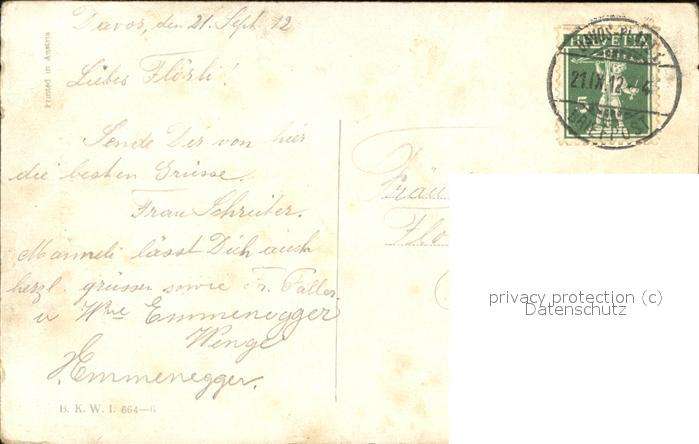 Davos, den 21. Sept. 12
Printed in Austria
Liebes Flörli!
Sende Dir von hier
die besten Grüsse.
Frau Schreiber.
Manneli lässt Dich auch
herzl. grüssen sowie Fr. Faller
u Wwe Emmenegger
H. Emmenegger.
B. K. W. I. 664-6
HELVETIA
5
DAVOS-PLATZ
21.IX.12
Fräu
Flo
privacy protection (c)
Datenschutz